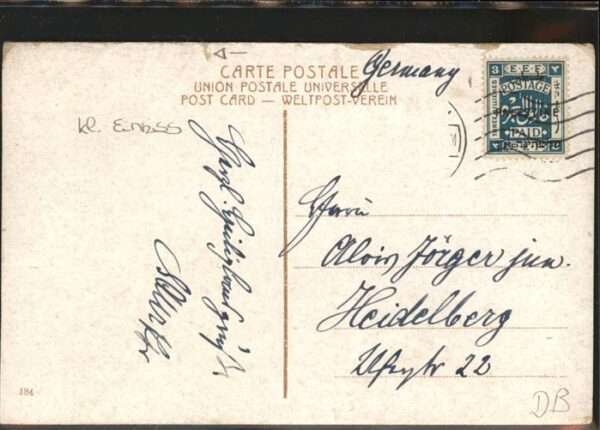 CARTE POSTALE
UNION POSTALE UNIVERSELLE
POST CARD — WELTPOST-VEREIN
Germany
3 E.E.F. ٣
POSTAGE
PAID
kl. Einriss
Herzl. Heiliglandgrüße
Herrn
Alois Jörger jun.
Heidelberg
22
184
DB